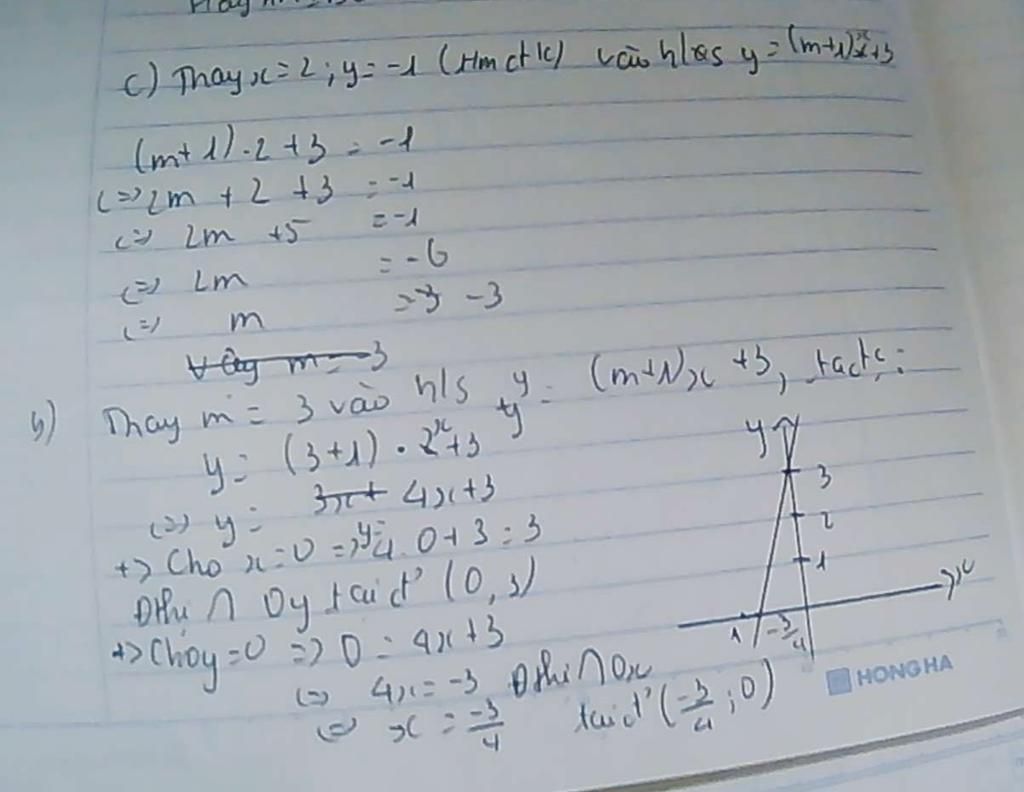 c) Thay x = 2 ; y = -1 (tmđk) vào h/s y = (m+1)x+3
(m+1).2 + 3 = -1
(=) 2m + 2 + 3 = -1
(=) 2m + 5 = -1
(=) 2m = -6
(=) m = -3
Vậy m = 3
b) Thay m = 3 vào h/s y = (m+1)x + 3, tacđc :
y = (3+1) . x + 3
(=) y = 3x + 4x + 3
+> Cho x = 0 => y = 4.0 + 3 = 3
Đthị ∩ Oy tại đ' (0, 3)
+> Cho y = 0 => 0 = 4x + 3
(=) 4x = -3 Đthị ∩ Ox
(=) x = -3/4 tại đ' (-3/4 ; 0)
y
3
2
1
x
1
-3/4
HONG HA